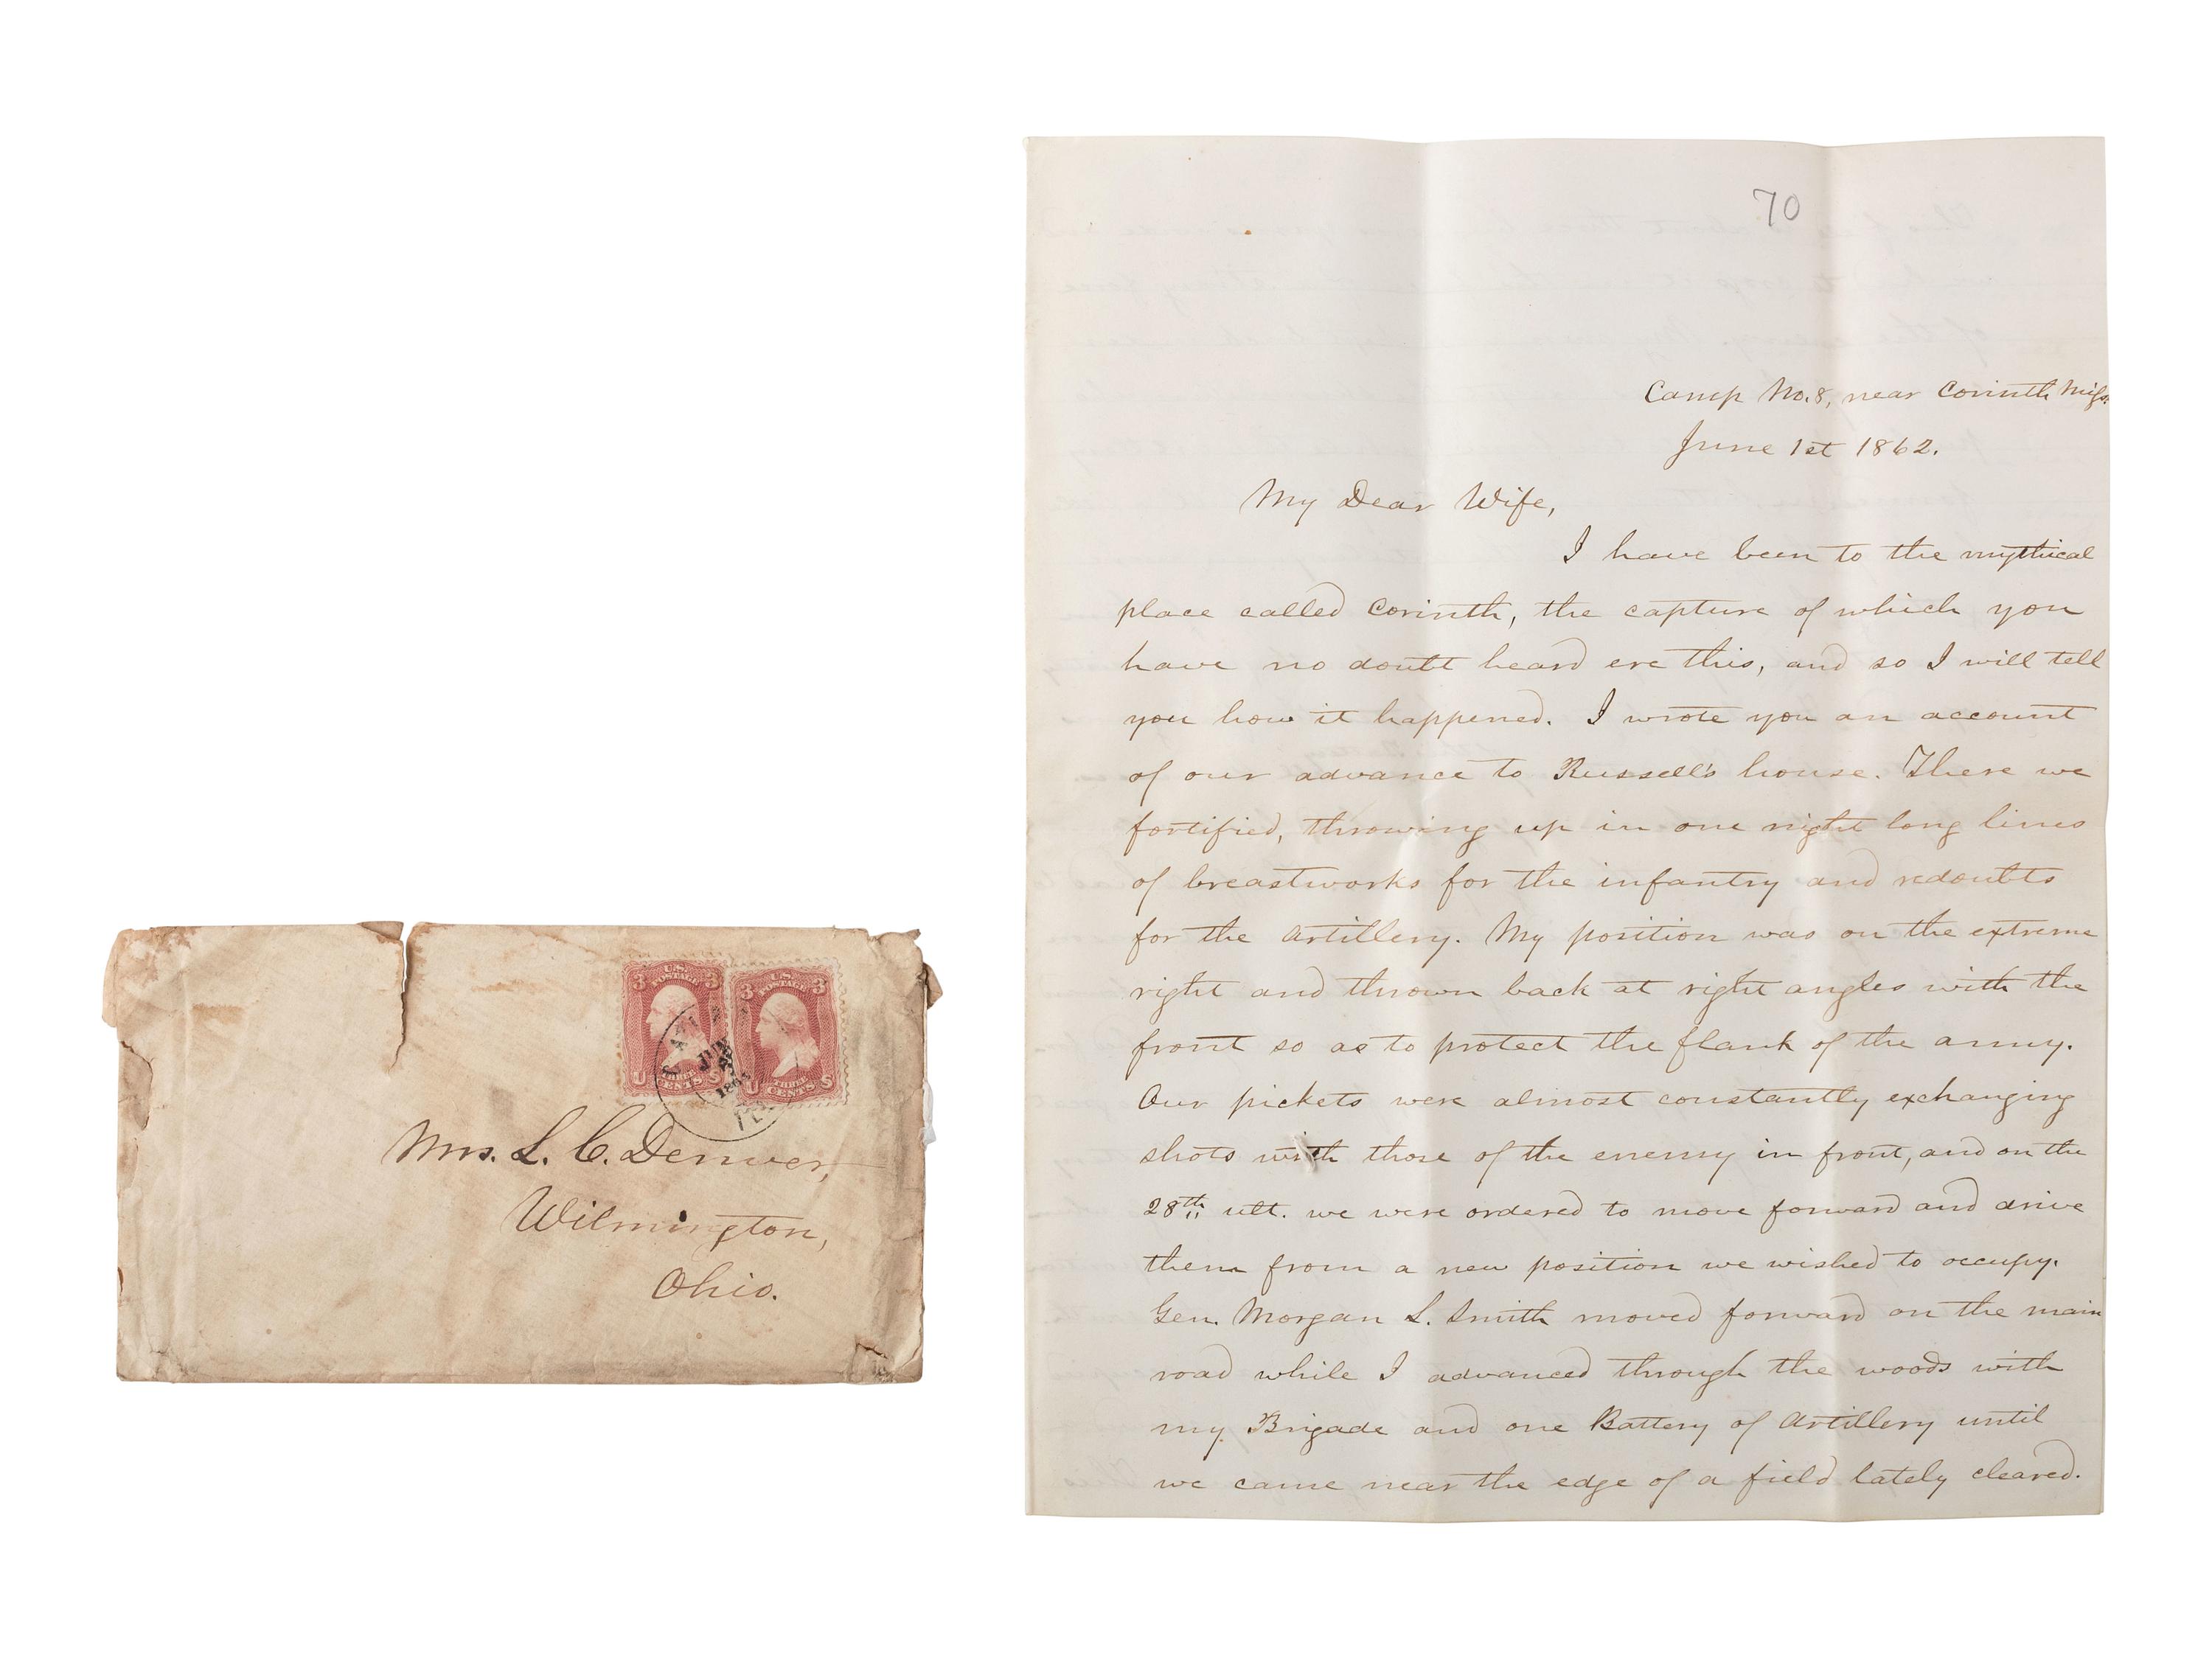 U.S.
POSTAGE
3 3
U THREE S
CENTS
U.S.
POSTAGE
3 3
U THREE S
CENTS
JUN
Mrs. L. C. Denver,
Wilmington,
Ohio.
70
Camp No. 8, near Corinth Miss.
June 1st 1862.
My Dear Wife,
I have been to the mythical
place called Corinth, the capture of which you
have no doubt heard ere this, and so I will tell
you how it happened. I wrote you an account
of our advance to Russell's house. There we
fortified, throwing up in one night long lines
of breastworks for the infantry and redoubts
for the Artillery. My position was on the extreme
right and thrown back at right angles with the
front so as to protect the flank of the army.
Our pickets were almost constantly exchanging
shots with those of the enemy in front, and on the
28th ult. we were ordered to move forward and drive
them from a new position we wished to occupy.
Gen. Morgan L. Smith moved forward on the main
road while I advanced through the woods with
my Brigade and one Battery of Artillery until
we came near the edge of a field lately cleared.